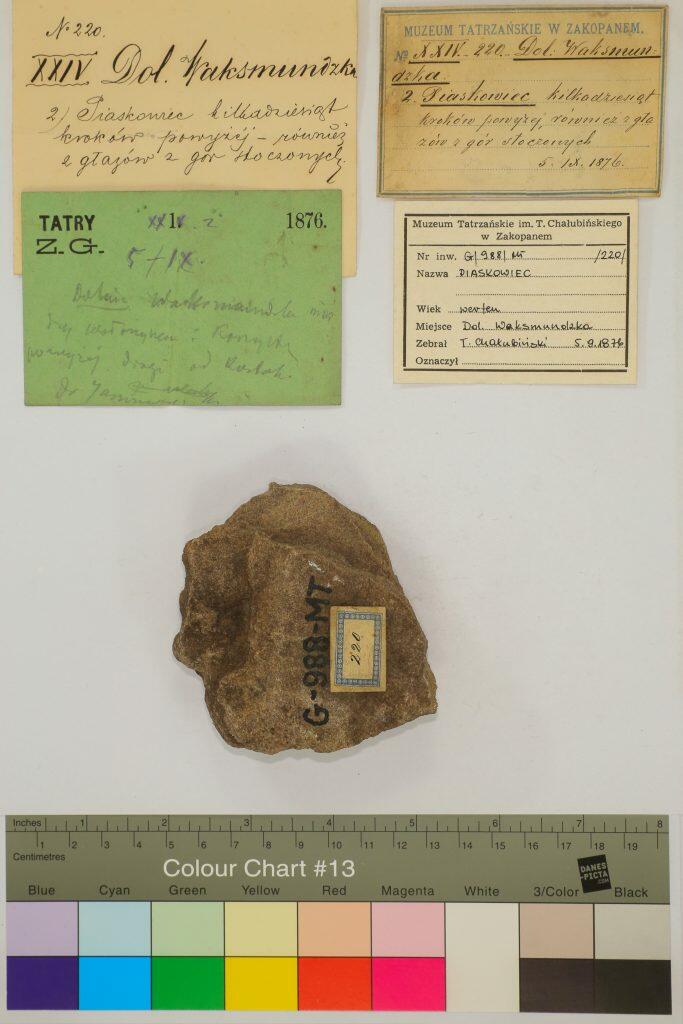 № 220.
XXIV Dol. Waksmundzka
2) Piaskowiec kilkadziesiąt
kroków powyżéj – również
z głazów z gór stoczonych
MUZEUM TATRZAŃSKIE W ZAKOPANEM.
№ XXIV - 220. Dol. Waksmun-
dzka.
2. Piaskowiec kilkadziesiąt
kroków powyżej, rownież z gła
zów z gór stoczonych
5. IX. 1876.
TATRY 1876.
Z. G. 5/IX.
Dolina
powyżej drogi od
Muzeum Tatrzańskie im. T. Chałubińskiego
w Zakopanem
Nr inw. G/988/MT /220/
Nazwa PIASKOWIEC
Wiek werfen
Miejsce Dol. Waksmundzka
Zebrał T. Chałubiński 5.9.1876
Oznaczył
G-988-MT
220
Inches 1 2 3 4 5 6 7 8
1 2 3 4 5 6 7 8 9 10 11 12 13 14 15 16 17 18 19
Centimetres
Colour Chart #13
DANES
-PICTA
.COM
Blue Cyan Green Yellow Red Magenta White 3/Color Black